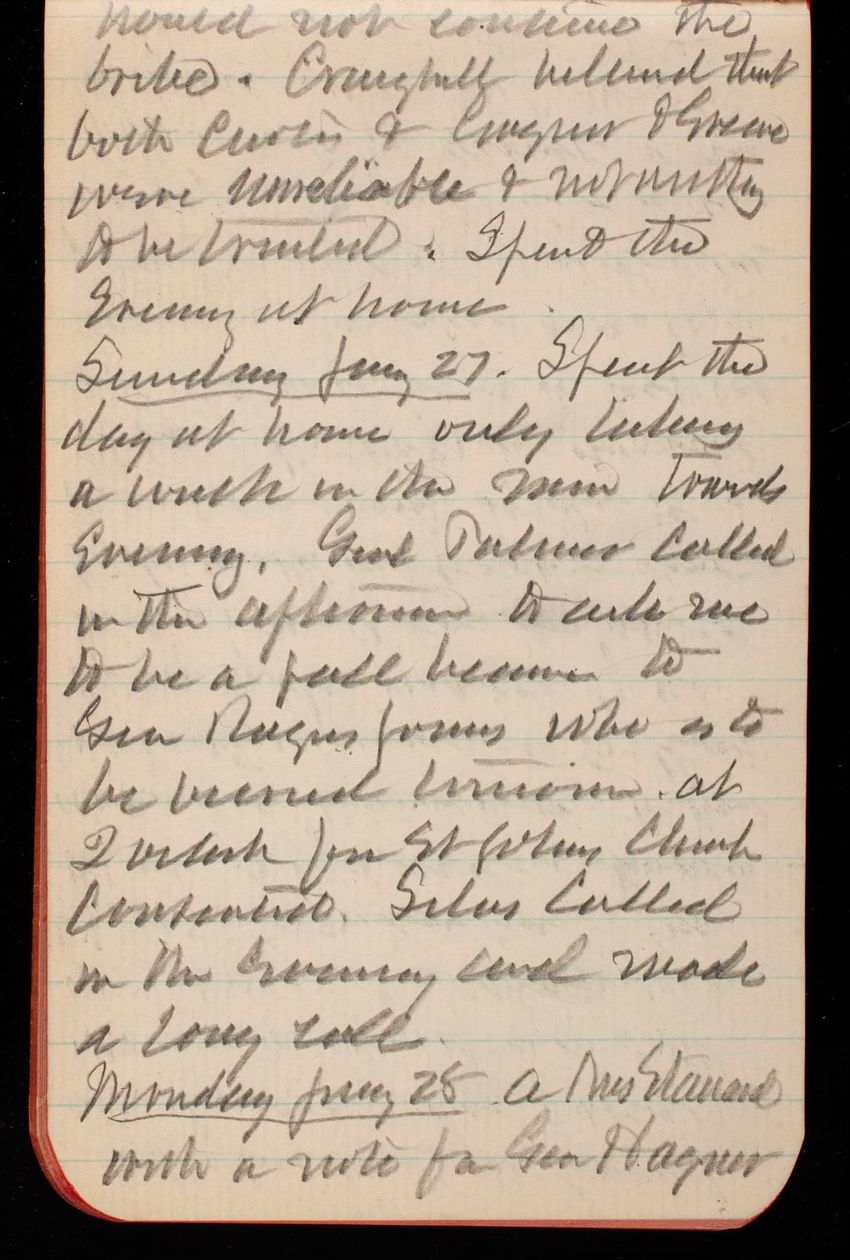 would not continue the
bribe. Craighill believed that
both Curtis & Gaynor & Greene
were unreliable & not worthy
to be trusted. Spent the
Evening at home.
Sunday Jany 27. Spent the
day at home only taking
a walk in the towards
Evening. Genl Palmer Called
in the afternoon to ask me
to be a pall bearer to
Gen Jones who is to
be buried tomorrow at
2 oclock from St Johns Church
. Silas Called
in the Evening and made
a long call.
Monday Jany 28 a Mrs Stannard
with a note fm Gen Hagner